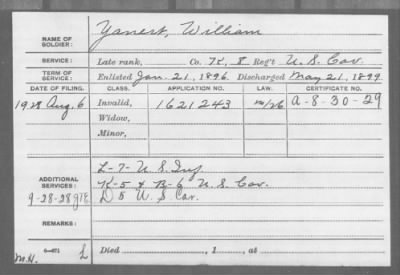 NAME OF SOLDIER: Yanert, William
SERVICE: Late rank, Co. K, 8 Reg't U.S. Cav.
TERM OF SERVICE: Enlisted Jan. 21, 1896. Discharged May 21, 1899
DATE OF FILING. CLASS. APPLICATION NO. LAW. CERTIFICATE NO.
1928 Aug. 6 Invalid, 1621243 A-8-30-29
Widow,
Minor,
ADDITIONAL SERVICES: L-7-U.S. Inf.
K-5 & B-6 U.S. Cav.
9-28-28 D 5 U.S. Cav.
REMARKS:
6-671 L
M.H. Died , 1 , at